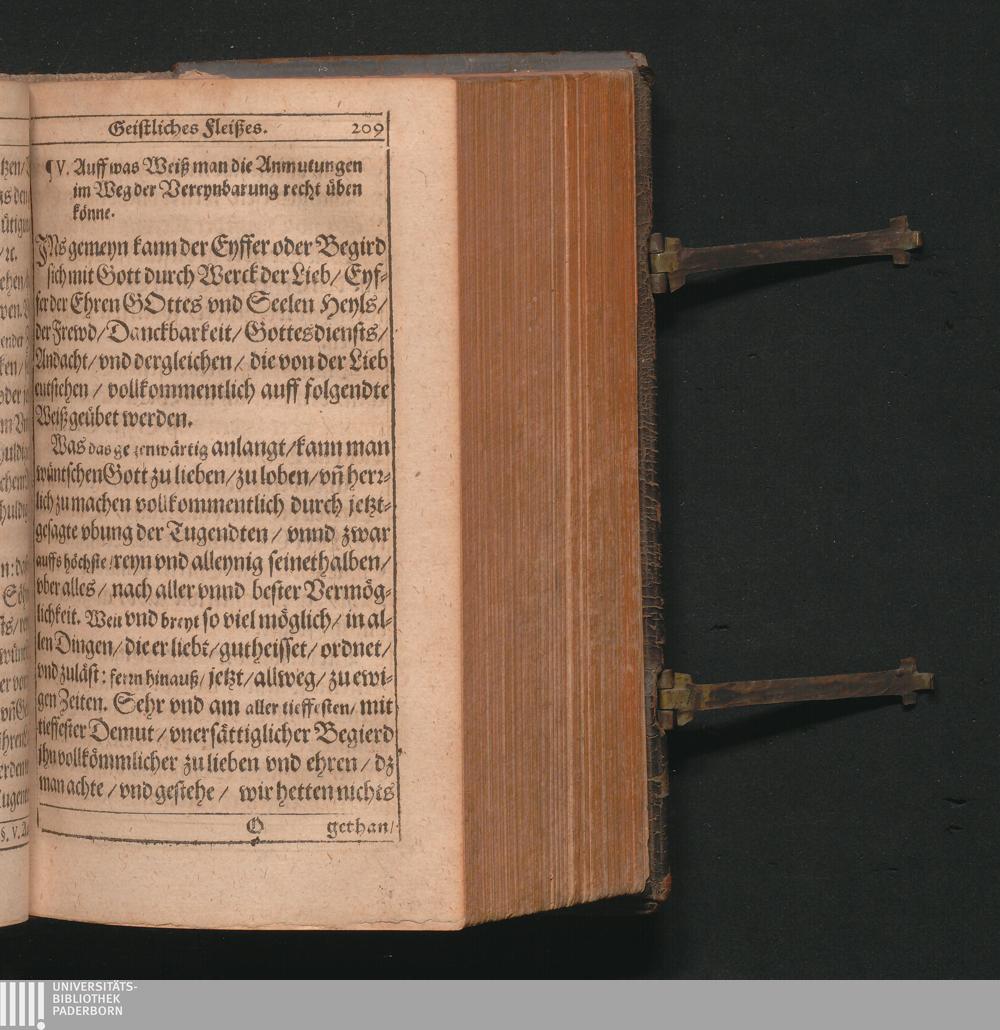 Geistliches Fleißes. 209
¶ V. Auff was Weiß man die Anmutungen
im Weg der Vereynbarung recht üben
könne.
INs gemeyn kann der Eyffer oder Begird
sich mit Gott durch Werck der Lieb/ Eyf-
fer der Ehren GOttes vnd Seelen Heyls/
der Frewd/ Danckbarkeit/ Gottesdiensts/
Andacht/ vnd dergleichen/ die von der Lieb
entstehen/ vollkommentlich auff folgendte
Weiß geübet werden.
Was das gegenwärtig anlangt/ kann man
wüntschen Gott zu lieben/ zu loben/ vñ herr-
lich zu machen vollkommentlich durch jetzt-
gesagte vbung der Tugendten/ vnnd zwar
auffs höchste/ reyn vnd alleynig seinethalben/
vber alles/ nach aller vnnd bester Vermög-
lichkeit. Weit vnd breyt so viel möglich/ in al-
len Dingen/ die er liebt/ gutheisset/ ordnet/
vnd zuläst: fern hinauß/ jetzt/ allweg/ zu ewi-
gen Zeiten. Sehr vnd am aller tieffesten/ mit
tieffester Demut/ vnersättiglicher Begierd
ihn vollkömmlicher zu lieben vnd ehren/ dz
man achte/ vnd gestehe/ wir hetten nichts
O gethan/
UNIVERSITÄTS-
BIBLIOTHEK
PADERBORN